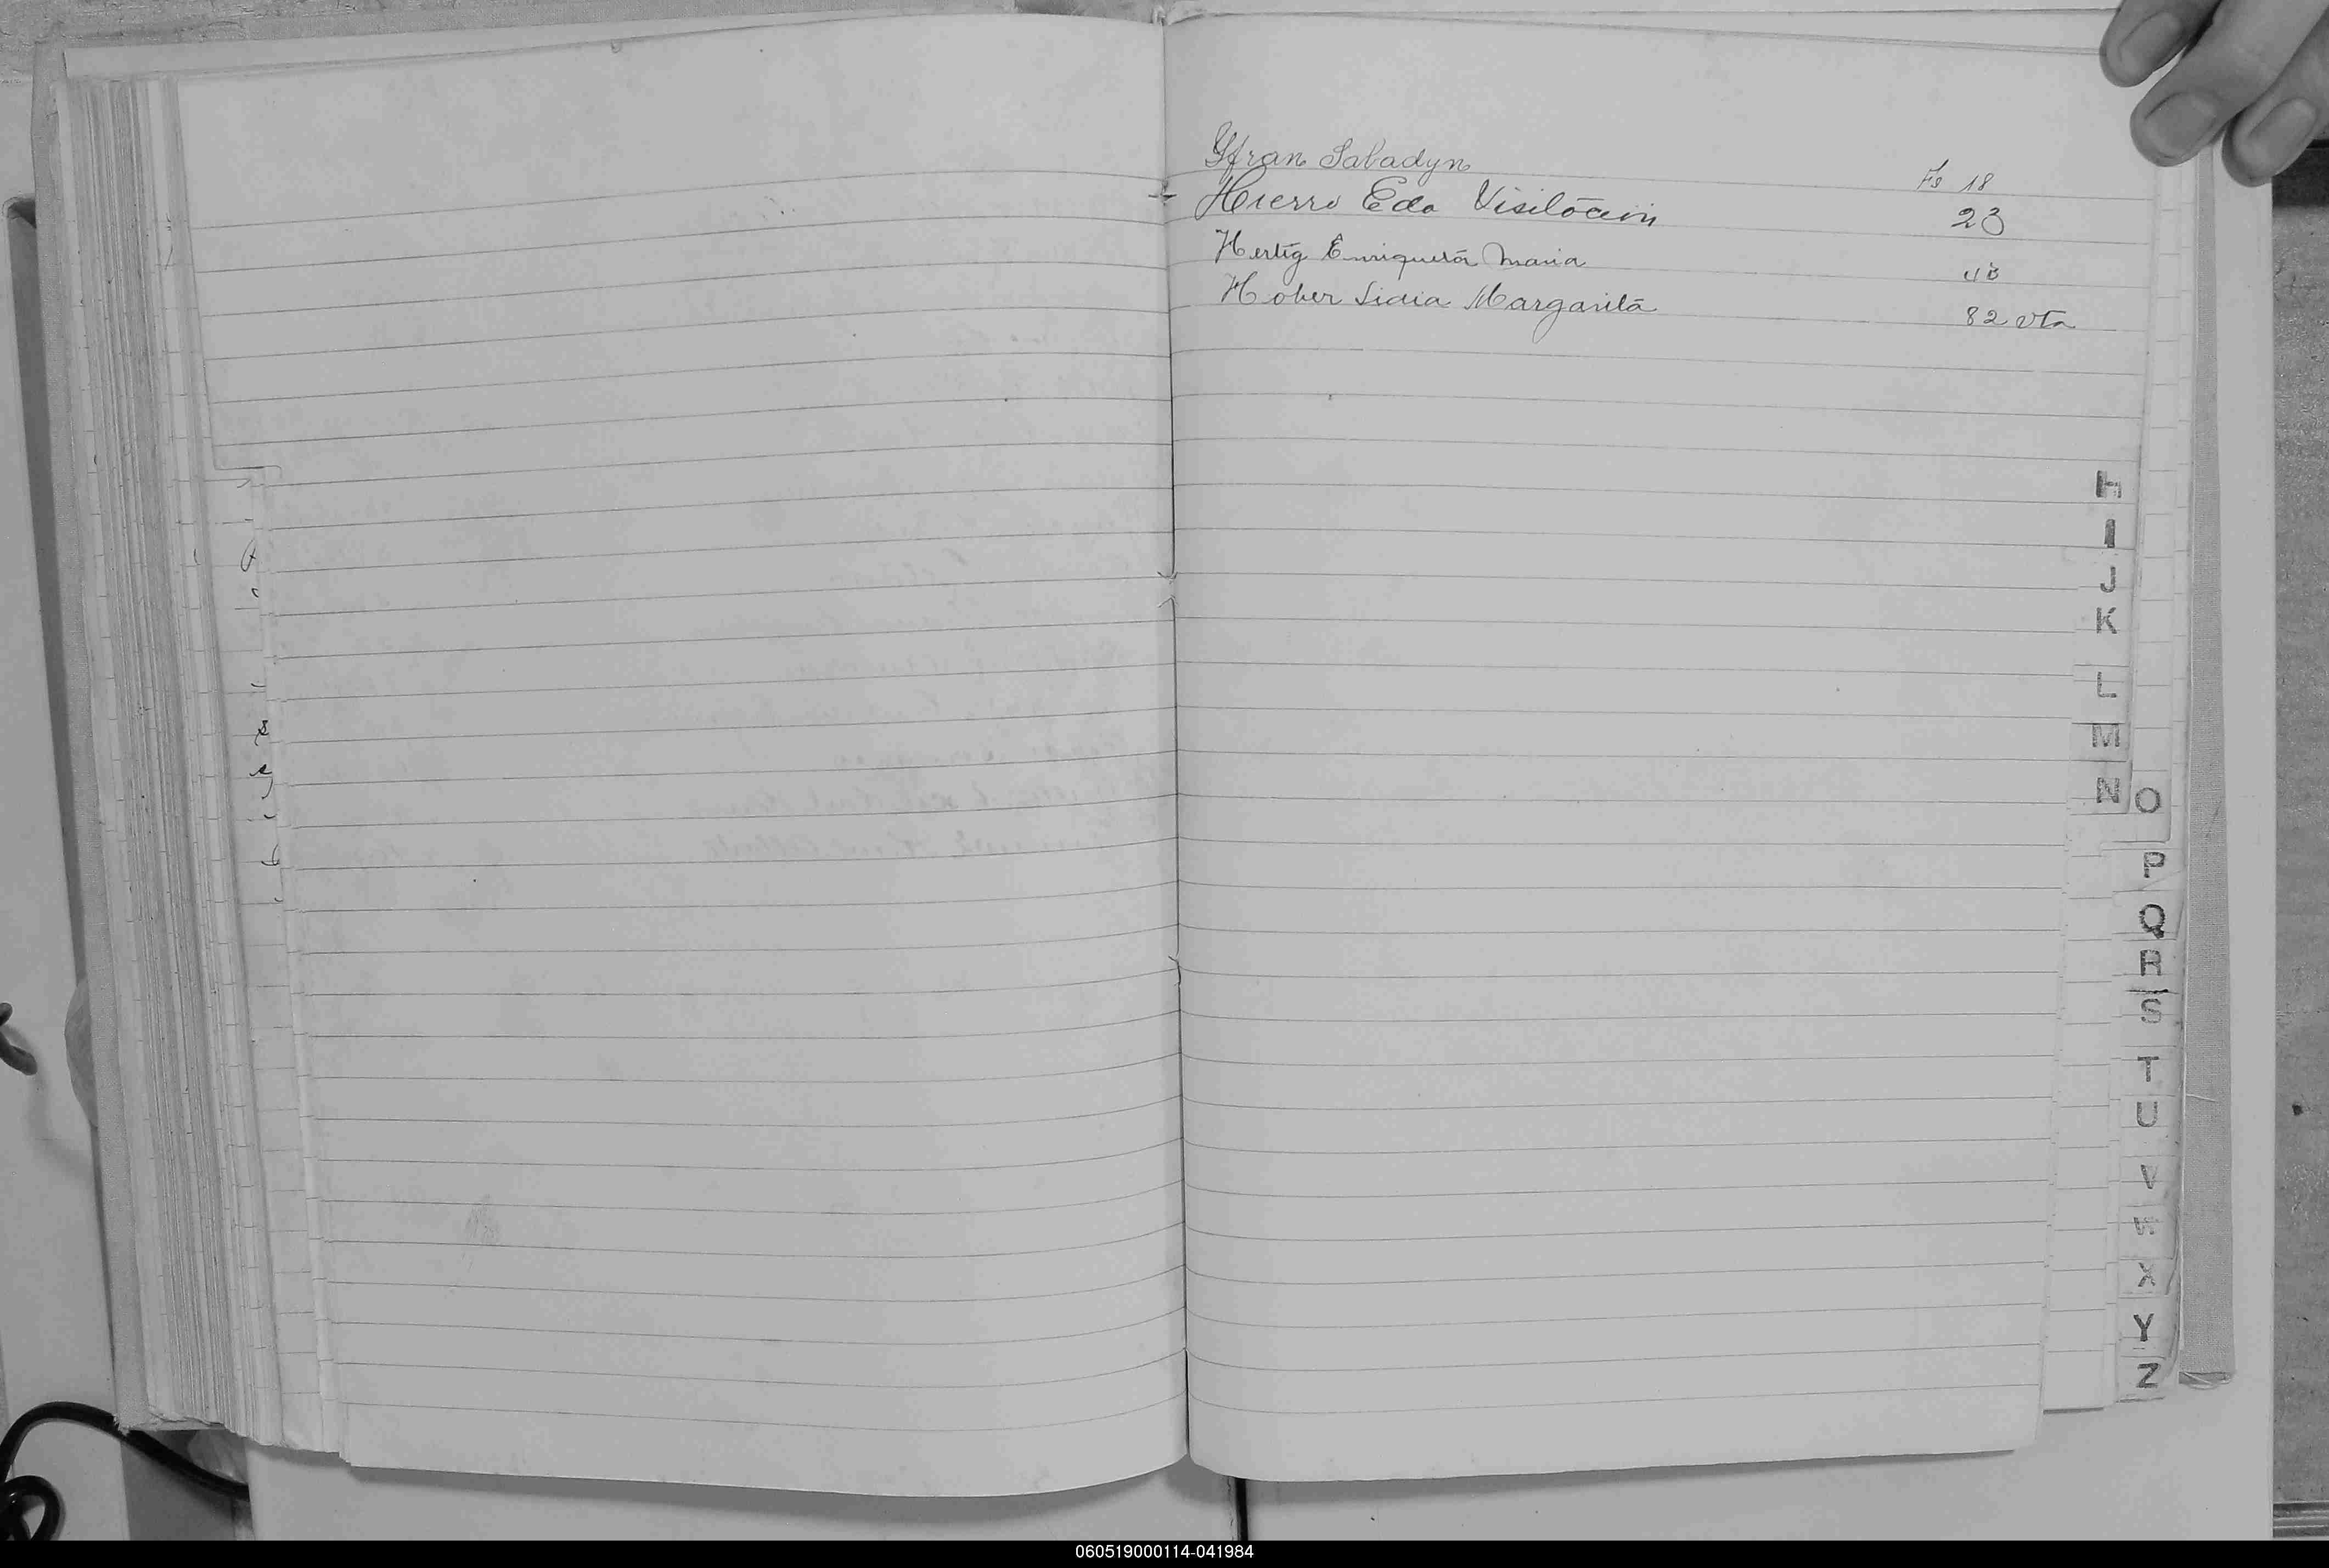 Yfran Sabadyn Fs 18
Hierro Eda 23
Hertig Enriqueta Maria 48
Hober Lidia Margarita 82 vta
H
I
J
K
L
M
N
O
P
Q
R
S
T
U
V
W
X
Y
Z
060519000114-041984